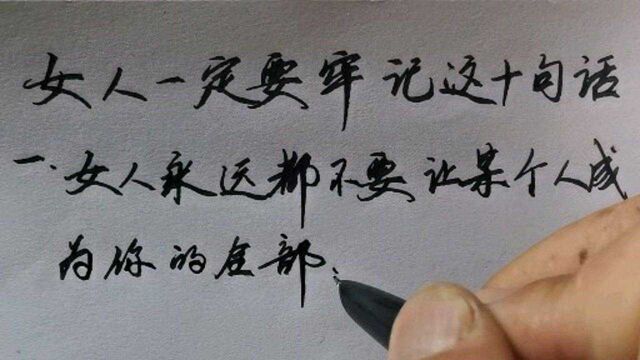 女人一定要牢记这十句话
一.女人永远都不要让某个人成
为你的全部;